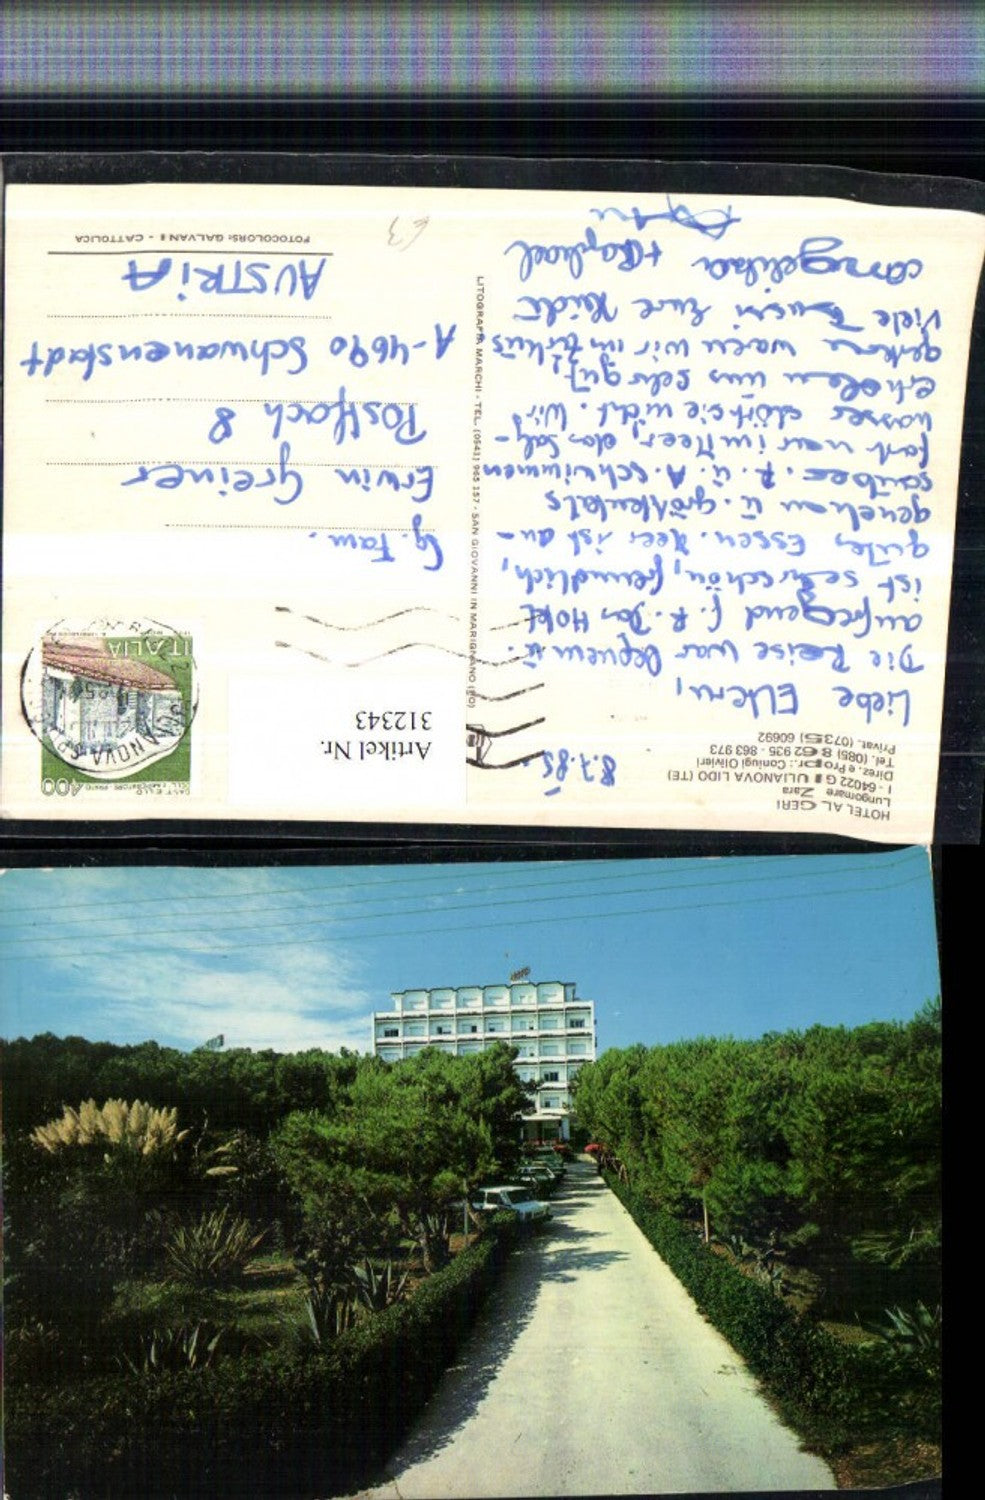 HOTEL ALGERI
Lungomare Zara
I - 64022 GIULIANOVA LIDO (TE)
Direz. e Propr.: Coniugi Olivieri
Tel. (085) 862 935 - 863 973
Privat. (0735) 60692
8.7.85.
Liebe Eltern,
Die Reise war bequem u.
aufregend f. R. Das Hotel
ist sehr schön, freundlich,
gutes Essen. Meer ist an-
genehm u. größtenteils
sauber. R. u. A. schwimmen
fast nur im Meer, das Salz-
wasser stört sie nicht. Wir
erholen uns sehr gut.
gestern waren wir im Zirkus
Viele Bussi Eure Heidi
+ Raphael
LITOGRAFIA MARCHI - TEL. (0541) 965 157 - SAN GIOVANNI IN MARIGNANO (FO)
Artikel Nr.
312343
CASTELLO
DELL'IMPERATORE - PRATO
400
ITALIA
Fg. Fam.
Erwin Greiner
Postfach 8
A-4690 Schwanenstadt
AUSTRIA
FOTOCOLORS: GALVANI - CATTOLICA
€3